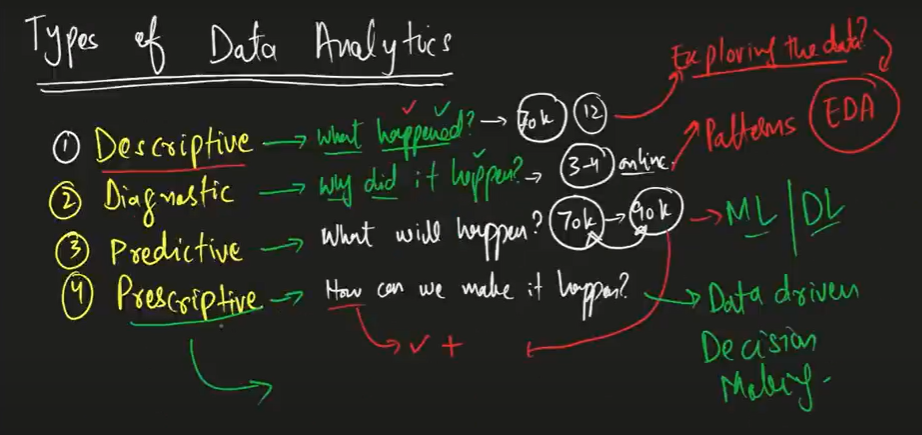 Types of Data Analytics
Exploring the data?
① Descriptive → What happened? → 70k 12
Patterns EDA
② Diagnostic → Why did it happen? → 3-4 online.
③ Predictive → What will happen? 70k → 90k → ML | DL
④ Prescriptive → How can we make it happen? → Data driven
Decision
Making.
✓ +